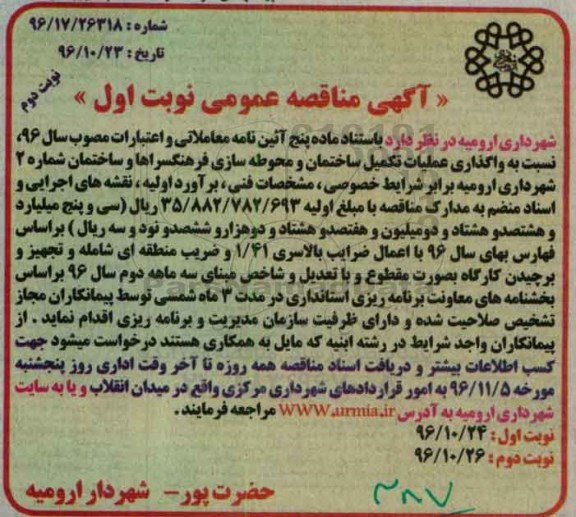 شماره: ۹۶/۱۷/۲۶۳۱۸
تاریخ: ۹۶/۱۰/۲۳
نوبت دوم
« آگهی مناقصه عمومی نوبت اول »
شهرداری ارومیه در نظر دارد باستناد ماده پنج آئین نامه معاملاتی و اعتبارات مصوب سال ۹۶،
نسبت به واگذاری عملیات تکمیل ساختمان و محوطه سازی فرهنگسراها و ساختمان شماره ۲
شهرداری ارومیه برابر شرایط خصوصی، مشخصات فنی، برآورد اولیه، نقشه های اجرایی و
اسناد منضم به مدارک مناقصه با مبلغ اولیه ۳۵/۸۸۲/۷۸۲/۶۹۳ ریال (سی و پنج میلیارد
و هشتصدو هشتاد و دومیلیون و هفتصدو هشتاد و دوهزارو ششصدو نود و سه ریال) براساس
فهارس بهای سال ۹۶ با اعمال ضرایب بالاسری ۱/۴۱ و ضریب منطقه ای شامله و تجهیز و
برچیدن کارگاه بصورت مقطوع و با تعدیل و شاخص مبنای سه ماهه دوم سال ۹۶ براساس
بخشنامه های معاونت برنامه ریزی استانداری در مدت ۳ ماه شمسی توسط پیمانکاران مجاز
تشخیص صلاحیت شده و دارای ظرفیت سازمان مدیریت و برنامه ریزی اقدام نماید . از
پیمانکاران واجد شرایط در رشته ابنیه که مایل به همکاری هستند درخواست میشود جهت
کسب اطلاعات بیشتر و دریافت اسناد مناقصه همه روزه تا آخر وقت اداری روز پنجشنبه
مورخه ۹۶/۱۱/۵ به امور قراردادهای شهرداری مرکزی واقع در میدان انقلاب و یا به سایت
شهرداری ارومیه به آدرس WWW.urmia.ir مراجعه فرمایند .
نوبت اول: ۹۶/۱۰/۲۴
نوبت دوم: ۹۶/۱۰/۲۶
حضرت پور - شهردار ارومیه